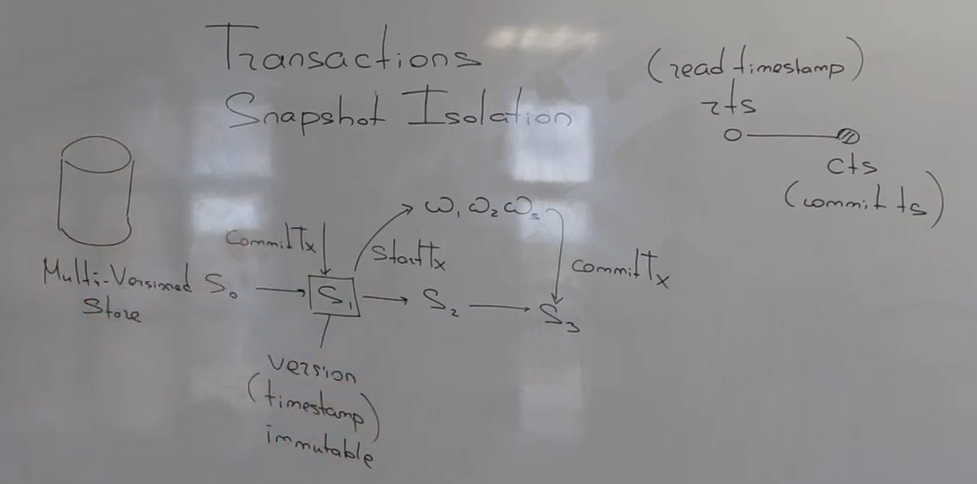 Transactions
Snapshot Isolation
(read timestamp)
rts
cts
(commit ts)
Multi-Versioned
Store
CommitTx
StartTx
ω₁ ω₂ ω₃
CommitTx
S₀ → S₁ → S₂ → S₃
version
(timestamp)
immutable